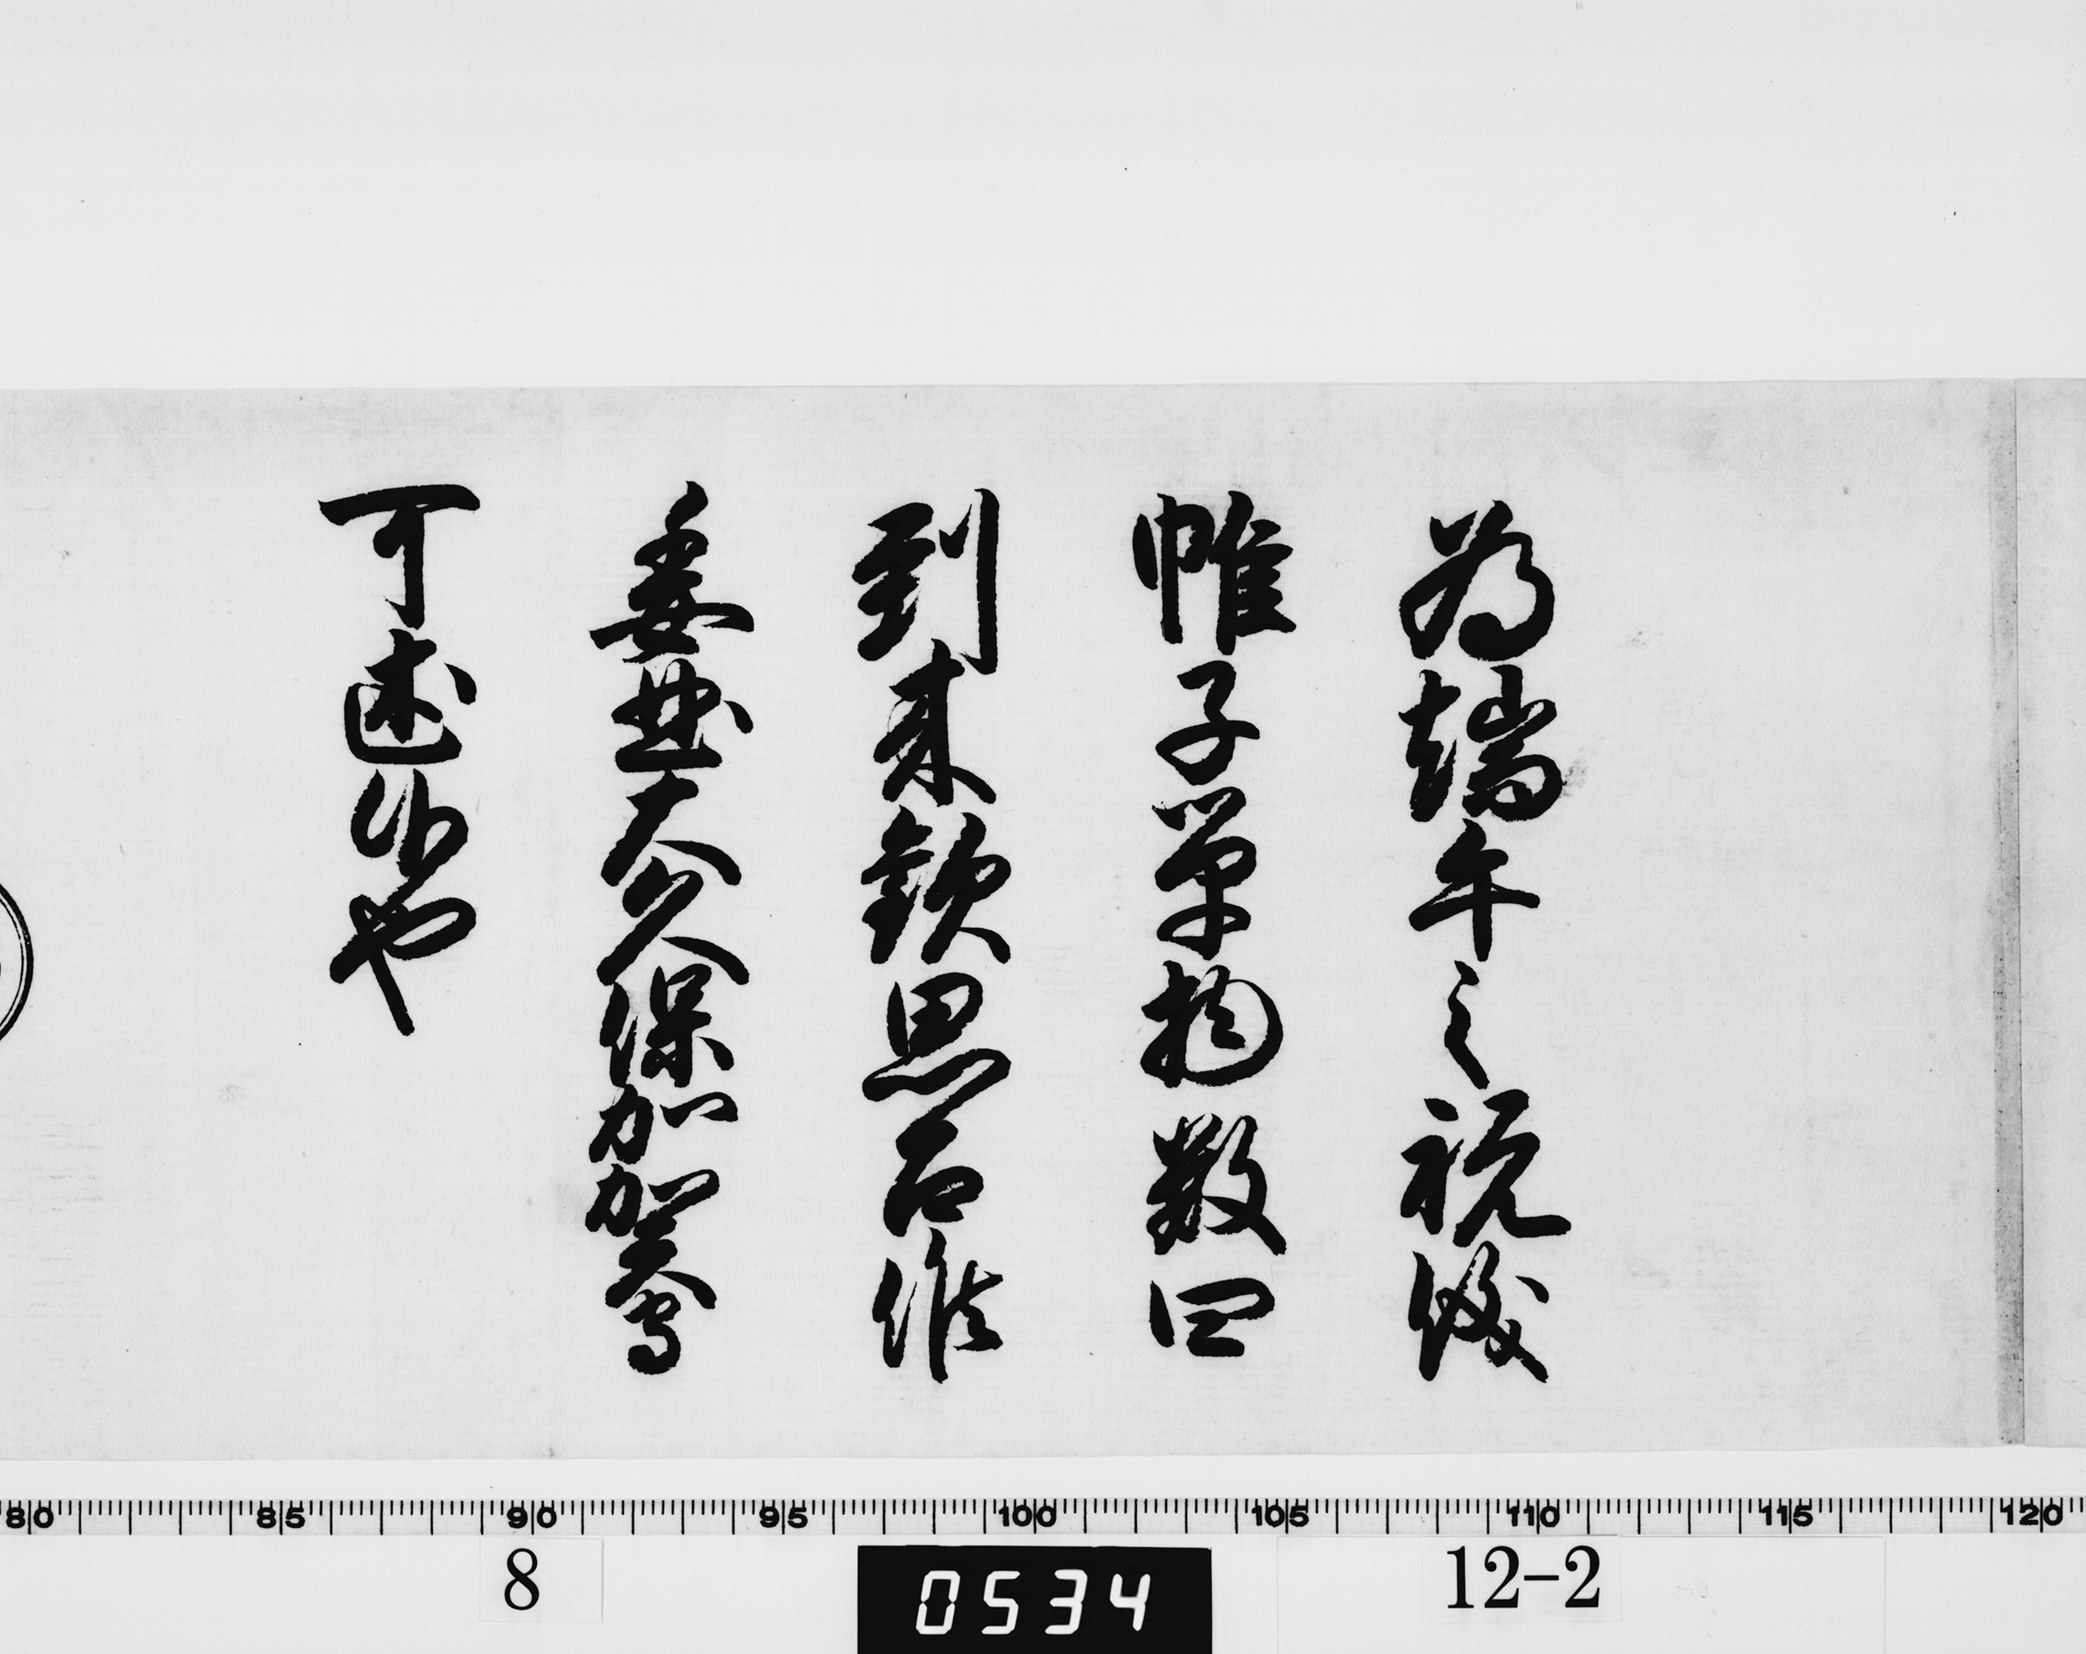 為端午之祝儀
帷子単物数四
到来歓思召候
委曲大久保加賀守
可述候也
80 85 90 95 100 105 110 115 120
8
0534
12-2